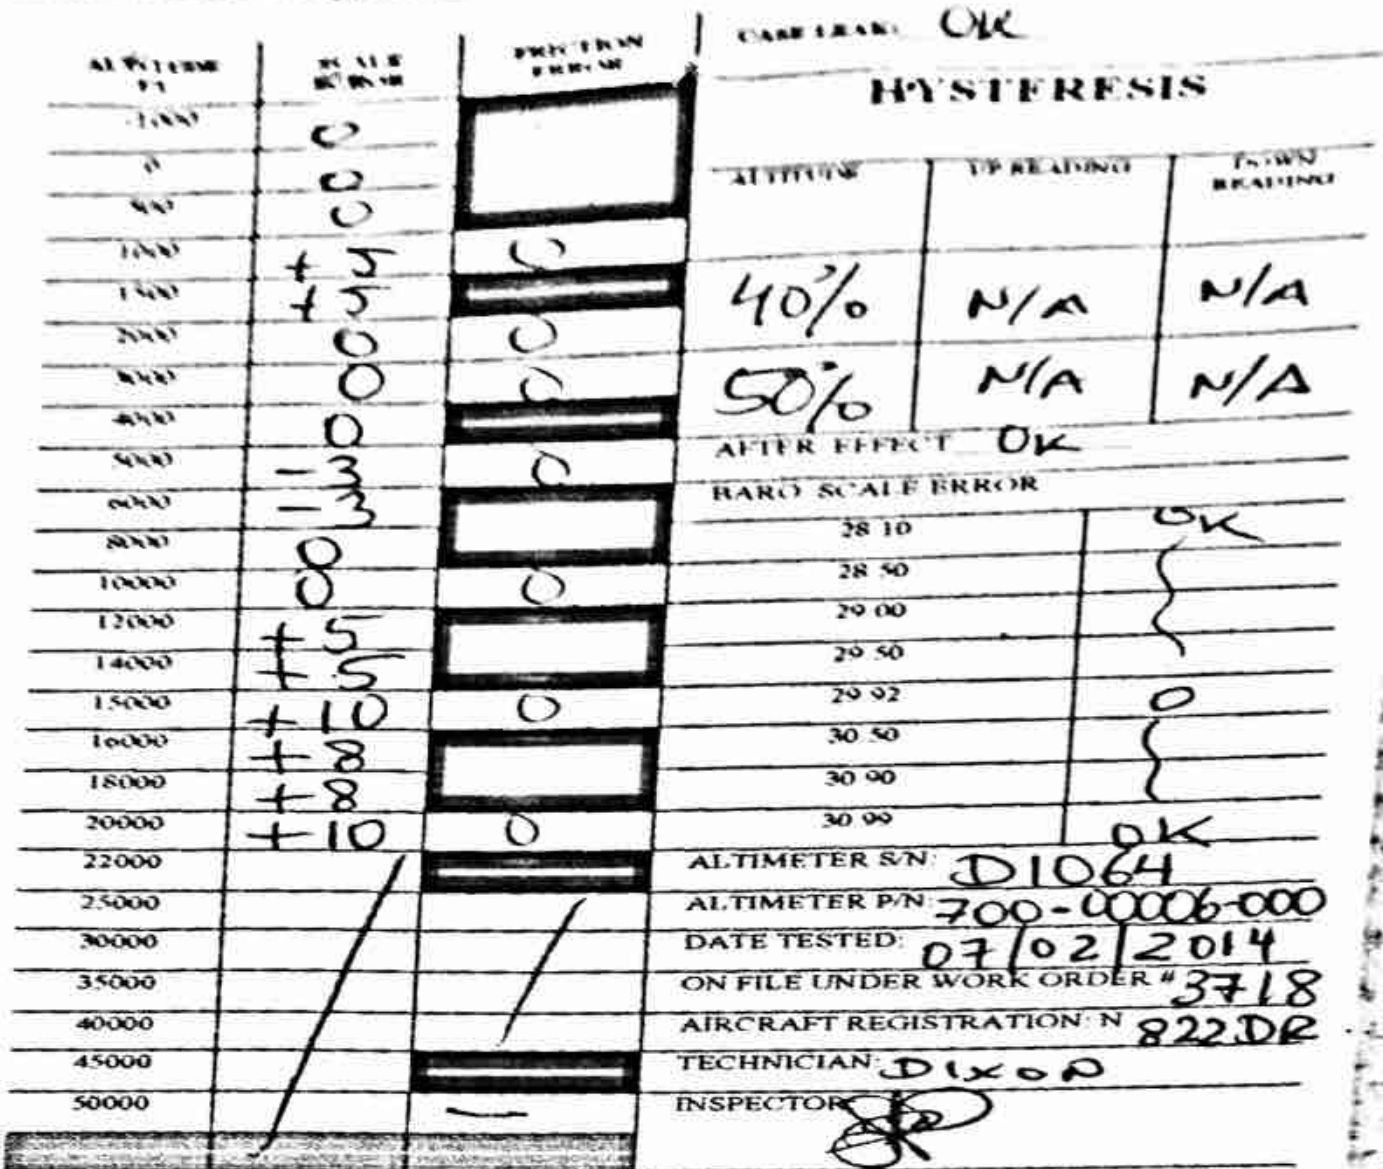 ALTITUDE FT SCALE ERROR FRICTION ERROR
-1000 0
0 0
500 0
1000 +5 0
1500 +5
2000 0 0
3000 0 0
4000 0
5000 -3 0
6000 -3
8000 0
10000 0 0
12000 +5
14000 +5
15000 +10 0
16000 +8
18000 +8
20000 +10 0
22000
25000
30000
35000
40000
45000
50000 —
CASE LEAK: OK
HYSTERESIS
ALTITUDE UP READING DOWN READING
40% N/A N/A
50% N/A N/A
AFTER EFFECT OK
BARO SCALE ERROR
28 10 OK
28 50
29 00
29 50
29 92 0
30 50
30 90
30 99 OK
ALTIMETER S/N: D1064
ALTIMETER P/N: 700-00006-000
DATE TESTED: 07/02/2014
ON FILE UNDER WORK ORDER # 3718
AIRCRAFT REGISTRATION: N 822DR
TECHNICIAN: DIXON
INSPECTOR